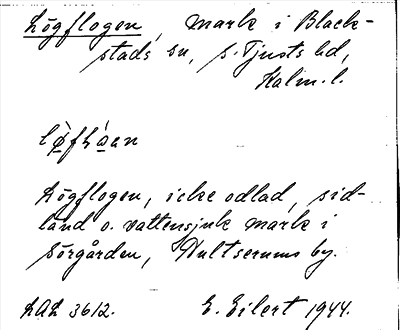 Högflogen, mark i Black-
stads sn, S. Tjusts hd,
Kalm. l.
Högflogen, icke odlad, sid-
länd o. vattensjuk mark i
Sörgården, Hultserums by.
LAL 3612. E. Eilert 1944.